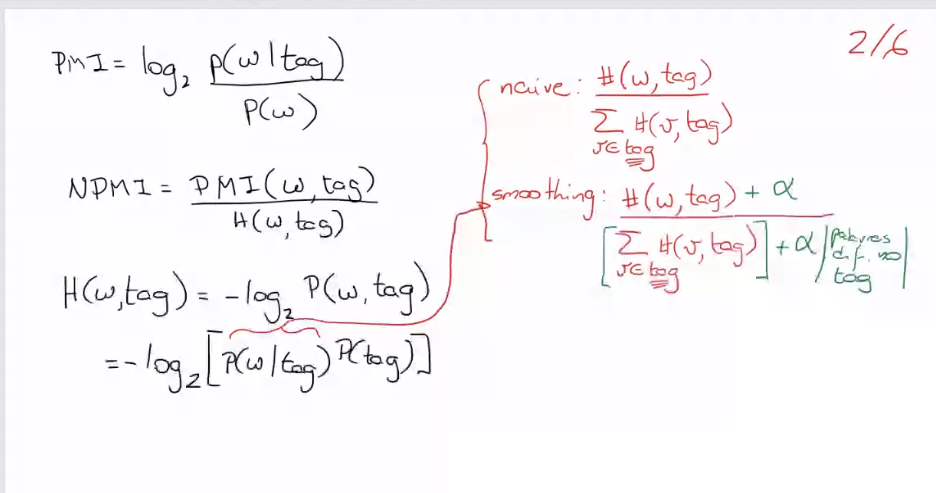 2/6
PMI = log₂ p(w|tag) / P(w)
NPMI = PMI(w, tag) / H(w, tag)
H(w,tag) = -log₂ P(w, tag)
= -log₂ [P(w|tag) P(tag)]
naive: #(w, tag) / Σ_{v∈tag} #(v, tag)
smoothing: #(w, tag) + α / [Σ_{v∈tag} #(v, tag)] + α |palavras dif. no tag|